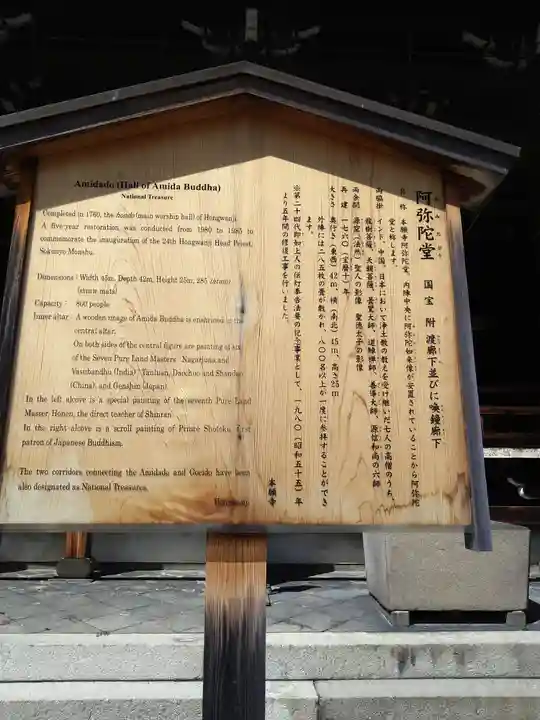 Amidado (Hall of Amida Buddha)
National Treasure
Completed in 1760, the hondo (main worship hall) of Hongwanji.
A five-year restoration was conducted from 1980 to 1985 to
commemorate the inauguration of the 24th Hongwanji Head Priest,
Sokunyo Monshu.
Dimensions : Width 45m, Depth 42m, Height 25m, 285 zenmi
(straw mats)
Capacity : 800 people
Inner altar : A wooden image of Amida Buddha is enshrined in the
central altar.
On both sides of the central figure are painting of six
of the Seven Pure Land Masters : Nagarjuna and
Vasubandhu (India) Tanluan, Daochuo and Shandao
(China), and Genshin (Japan)
In the left alcove is a special painting of the seventh Pure Land
Master, Honen, the direct teacher of Shinran.
In the right alcove is a scroll painting of Prince Shotoku, first
patron of Japanese Buddhism.
The two corridors connecting the Amidado and Goeido have been
also designated as National Treasures.
Hongwanji
阿弥陀堂 国宝 附 渡廊下並びに喚鐘廊下
名称 本願寺阿弥陀堂、内陣中央に阿弥陀如来像が安置されていることから阿弥陀
堂と称します。
両脇壇 インド、中国、日本において浄土教の教えを受け継いだ七人の高僧のうち、
龍樹菩薩、天親菩薩、曇鸞大師、道綽禅師、善導大師、源信和尚の六師
両余間 源空(法然)聖人の影像 聖徳太子の影像
再建 一七六〇(宝暦十)年
大きさ 奥行き(東西)42m、横(南北)45m、高さ25m
外陣には二八五枚の畳が敷かれ、八〇〇名以上が一度に参拝することができ
ます。
※第二十四代即如上人の伝灯奉告法要の記念事業として、一九八〇(昭和五十五)年
より五年間の修復工事を行いました。
本願寺